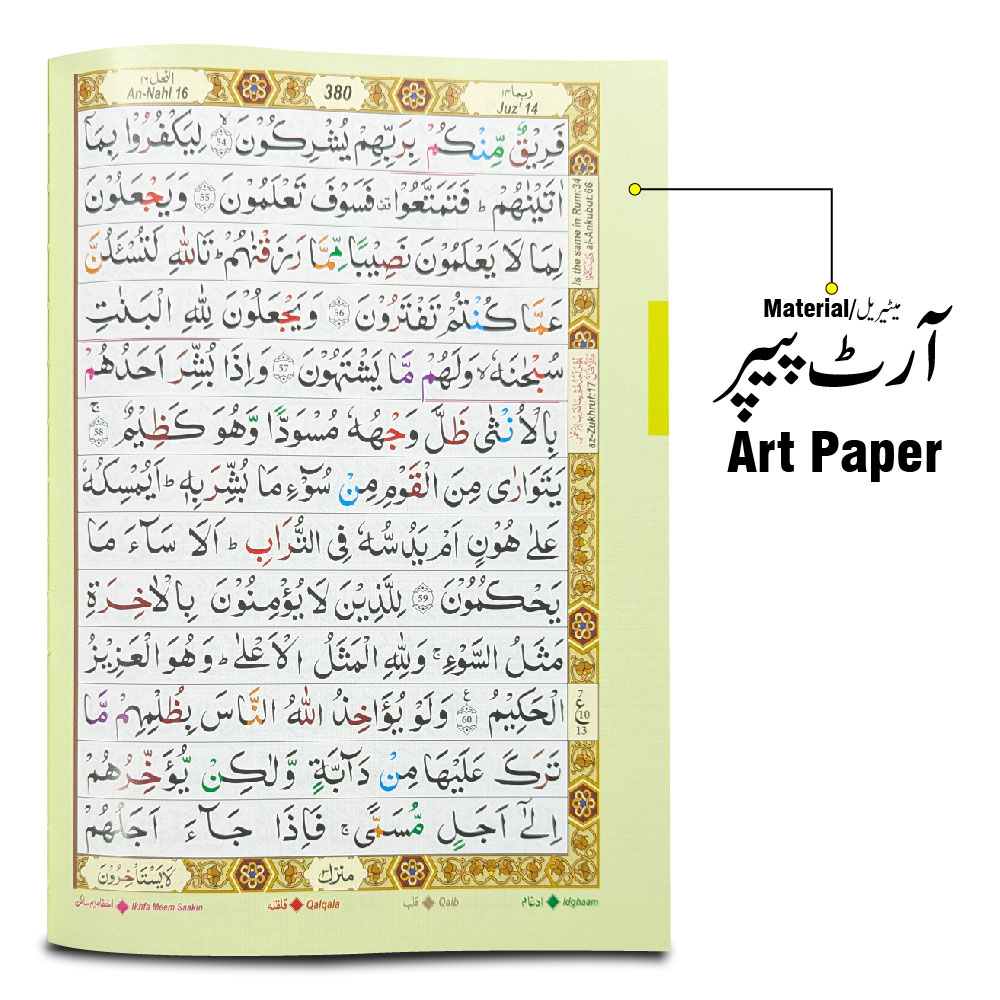 النحل ١٦
An-Nahl 16
380
ربما ١٤
Juz' 14
فَرِيْقٌ مِّنْكُمْ بِرَبِّهِمْ يُشْرِكُوْنَ 54 لِيَكْفُرُوْا بِمَاۤ
اٰتَيْنٰهُمْ ؕ فَتَمَتَّعُوْا قف فَسَوْفَ تَعْلَمُوْنَ 55 وَيَجْعَلُوْنَ
لِمَا لَا يَعْلَمُوْنَ نَصِيْبًا مِّمَّا رَزَقْنٰهُمْ ؕ تَاللّٰهِ لَتُسْـَٔلُنَّ
عَمَّا كُنْتُمْ تَفْتَرُوْنَ 56 وَيَجْعَلُوْنَ لِلّٰهِ الْبَنٰتِ
سُبْحٰنَهٗ ۙ وَلَهُمْ مَّا يَشْتَهُوْنَ 57 وَاِذَا بُشِّرَ اَحَدُهُمْ
بِالْاُنْثٰى ظَلَّ وَجْهُهٗ مُسْوَدًّا وَّهُوَ كَظِيْمٌ 58 ج
يَتَوَارٰى مِنَ الْقَوْمِ مِنْ سُوْٓءِ مَا بُشِّرَ بِهٖ ؕ اَيُمْسِكُهٗ
عَلٰى هُوْنٍ اَمْ يَدُسُّهٗ فِى التُّرَابِ ؕ اَلَا سَآءَ مَا
يَحْكُمُوْنَ 59 لِلَّذِيْنَ لَا يُؤْمِنُوْنَ بِالْاٰخِرَةِ
مَثَلُ السَّوْءِ ۚ وَلِلّٰهِ الْمَثَلُ الْاَعْلٰى ؕ وَهُوَ الْعَزِيْزُ
الْحَكِيْمُ 60 ع وَلَوْ يُؤَاخِذُ اللّٰهُ النَّاسَ بِظُلْمِهِمْ مَّا
تَرَكَ عَلَيْهَا مِنْ دَآبَّةٍ وَّلٰكِنْ يُّؤَخِّرُهُمْ
اِلٰٓى اَجَلٍ مُّسَمًّى ۚ فَاِذَا جَآءَ اَجَلُهُمْ
Is the same in Rum:34
al-Ankubut:66
az-Zukhruf:17
7
ع
10
13
لَا يَسْتَاْخِرُوْنَ
منزل ٣
اخفا میم ساکن Ikhfa Meem Saakin
قلقلہ Qalqala
قلب Qalb
ادغام Idghaam
Material/میٹیریل
آرٹ پیپر
Art Paper